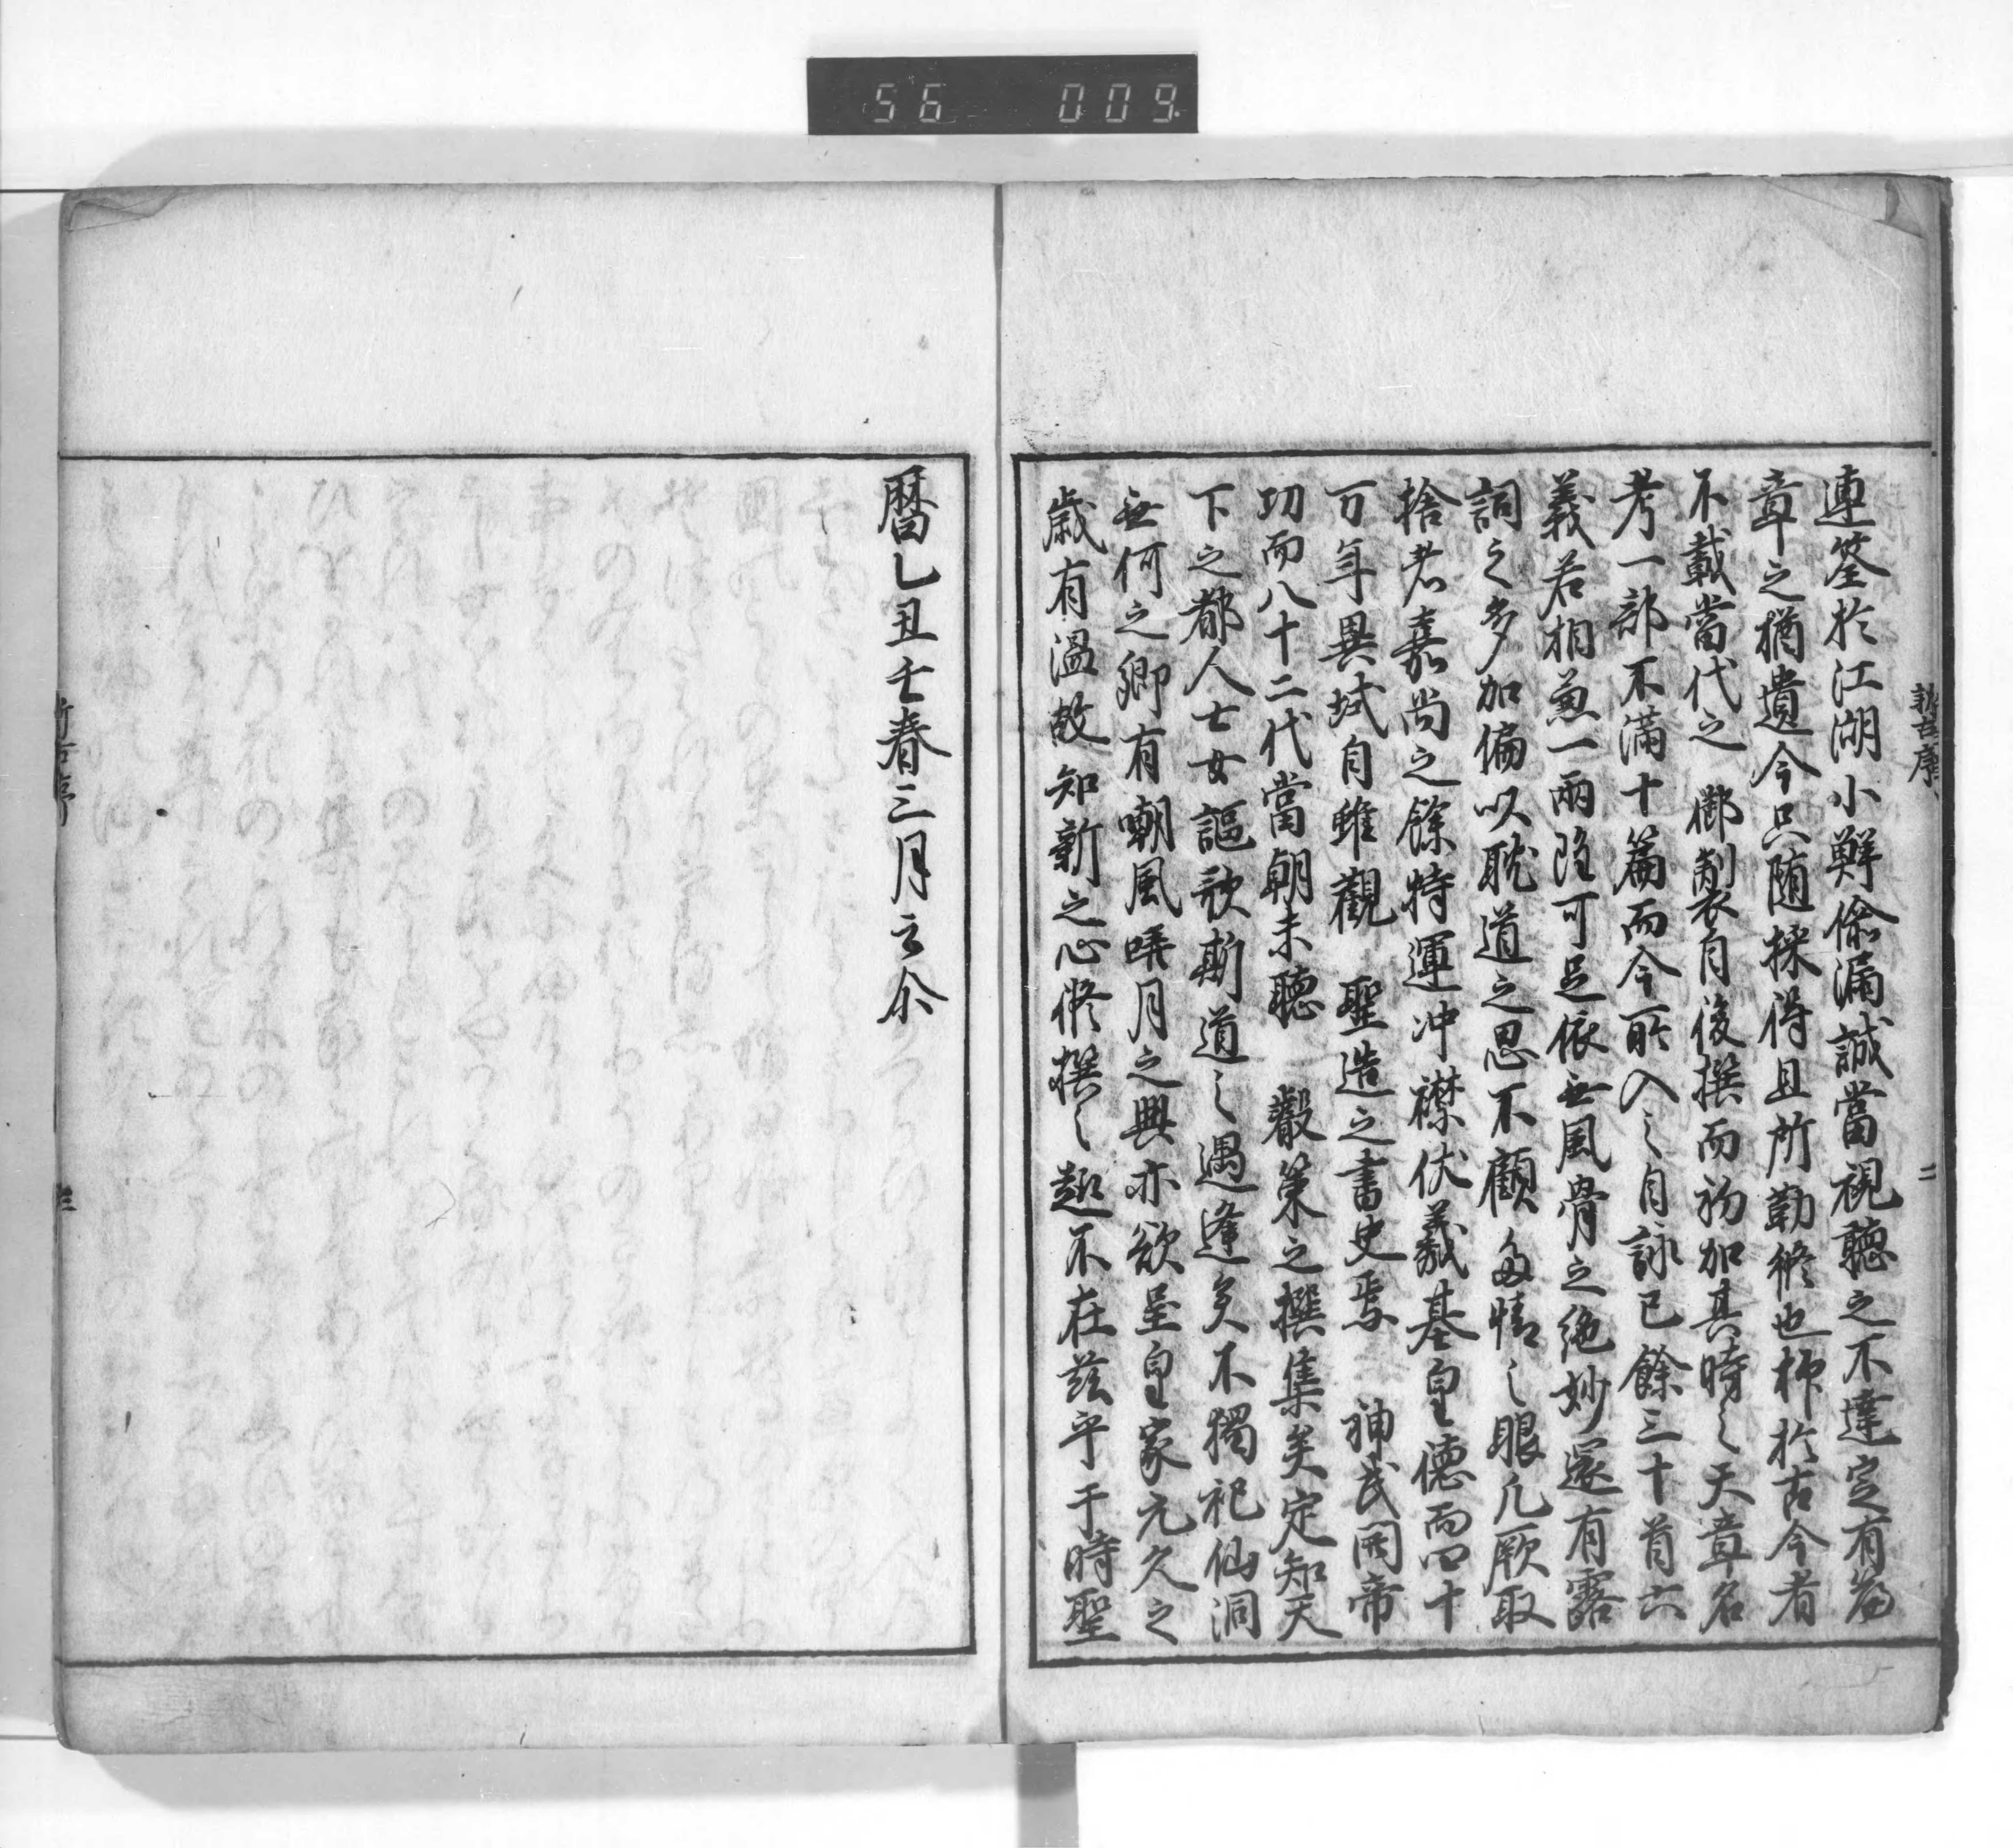 56 009
新古序
二
連筌於江湖小鮮偸漏誠當視聽之不達定有篇
章之猶遺今只随採得且所勒終也抑於古今者
不載當代之御製自後撰而初加其時之天章各
考一部不滿十篇而今所入之自詠已餘三十首六
義若相兼一兩雖可足依無風骨之絶妙還有露
詞之多加偏以耽道之思不顧多情之眼凡厥取
捨者嘉尚之餘特運冲襟伏羲基皇德而四十
万年異域自雖觀聖造之書史焉神武開帝
功而八十二代當朝未聽叡策之撰集矣定知天
下之都人士女謳歌斯道之遇逢矣不獨祀仙洞
無何之鄉有嘲風哢月之興亦欲呈皇家元久之
歳有温故知新之心修撰之趣不在茲乎于時聖
曆乙丑壬春三月云尒
新古序
三